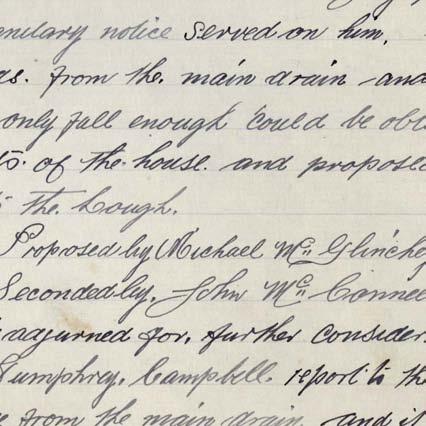 notice served on him.
from the main drain and
only fall enough could be
of the house. and
the Lough.
Proposed by Michael Mc Glinchey
Seconded by, John Mc
adjourned for, further
Humphrey. Campbell. report to the
from the main drain and it